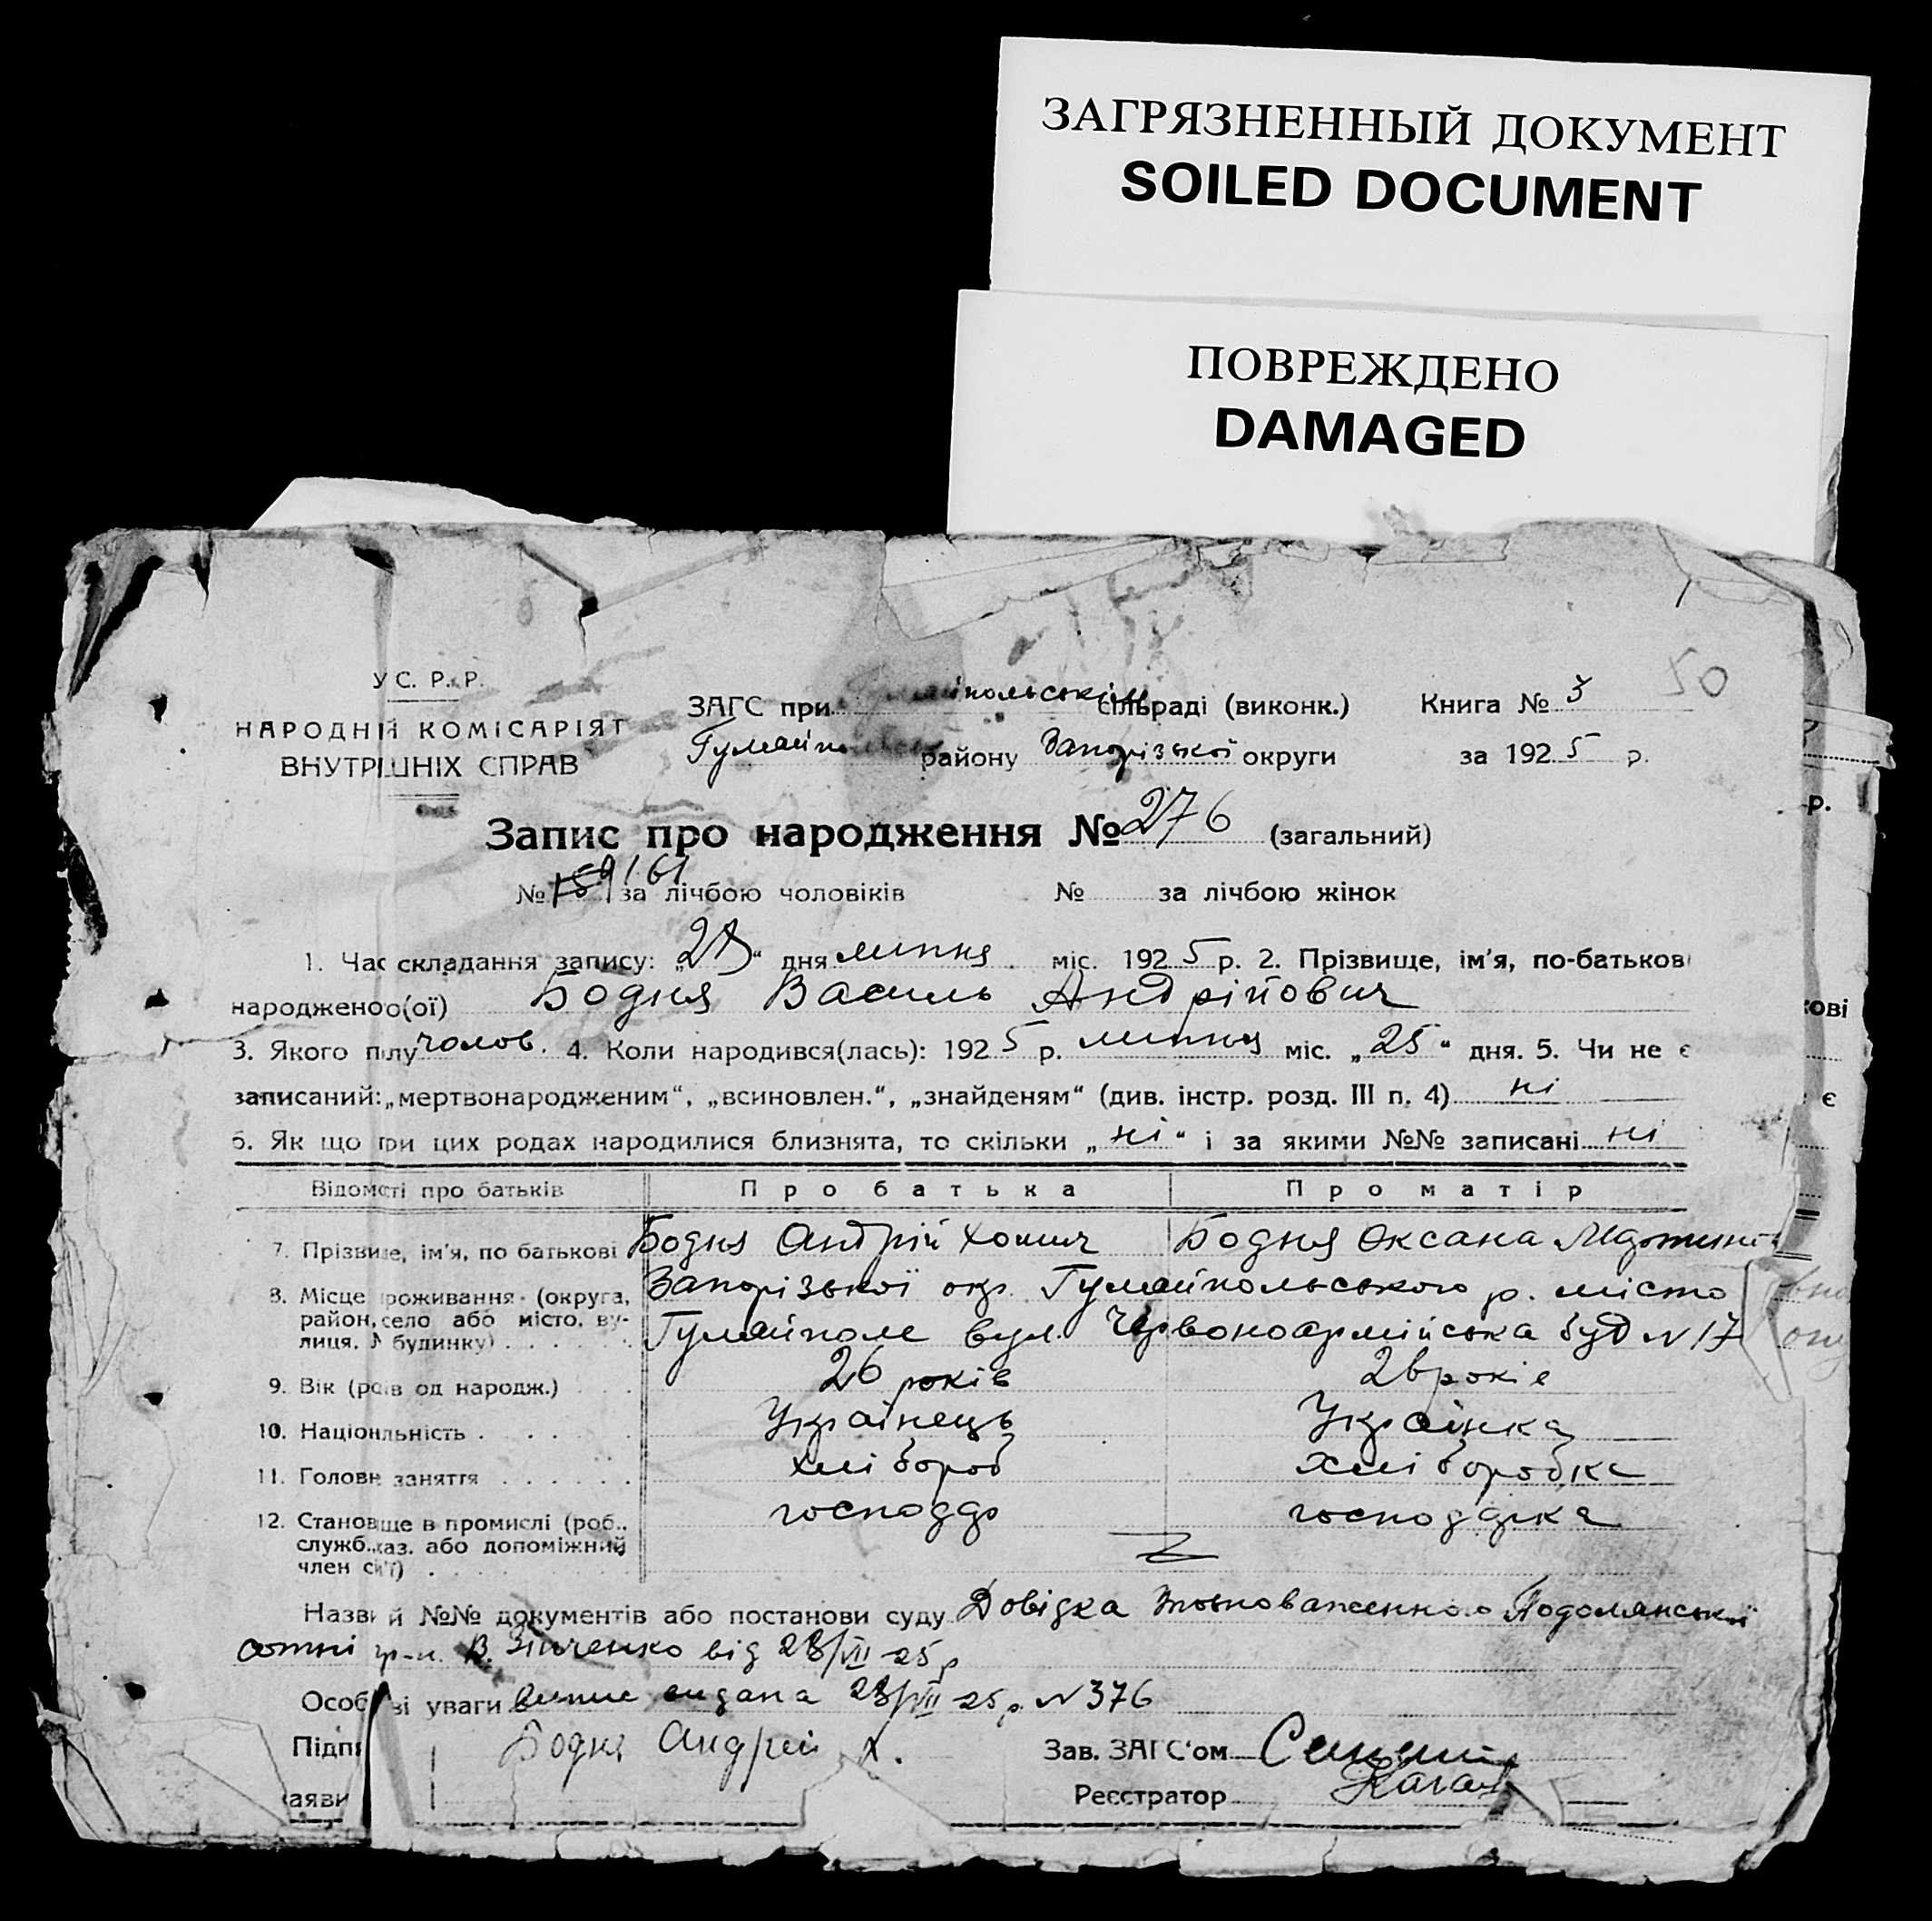 ЗАГРЯЗНЕННЫЙ ДОКУМЕНТ
SOILED DOCUMENT
ПОВРЕЖДЕНО
DAMAGED
50
У.С.Р.Р.
НАРОДНІЙ КОМІСАРІЯТ
ВНУТРІШНІХ СПРАВ
ЗАГС при сільраді (виконк.) Книга № 3
району Запорізької округи за 1925 р.
Запис про народження № 276 (загальний)
№ 161 за лічбою чоловіків № за лічбою жінок
1. Час складання запису: „28“ дня липня міс. 1925 р. 2. Прізвище, ім'я, по-батькові
народженоо(ої) Бодня Василь Андрійович
3. Якого полу чолов. 4. Коли народився(лась): 1925 р. липня міс. „25“ дня. 5. Чи не є
записаний: „мертвонародженим“, „всиновлен.“, „знайденям“ (див. інстр. розд. III п. 4) ні
6. Як що при цих родах народилися близнята, то скільки „ні“ і за якими №№ записані ні
Відомості про батьків Про батька Про матір
7. Прізвище, ім'я, по батькові Бодня Андрій Хомич Бодня Оксана
8. Місце проживання (округа, район, село або місто, вулиця, № будинку) Запорізької окр. Гуляйпольського р. місто
Гуляйполе вул. Червоноармійська буд № 17
9. Вік (років од народж.) 26 років 26 років
10. Національність Українець Українка
11. Головне заняття хлібороб хліборобка
12. Становище в промислі (роб., служб., хаз. або допоміжний член сім'ї) господар господарка
Назви й №№ документів або постанови суду Довідка Подолянської
сотні гр-н. В. Зінченко від 28/VII-25 р
Особливі уваги випис видана 28/VII-25 р. № 376
Підпис Бодня Андрій Х. Зав. ЗАГС'ом
заявн Реєстратор
р.
кові
є